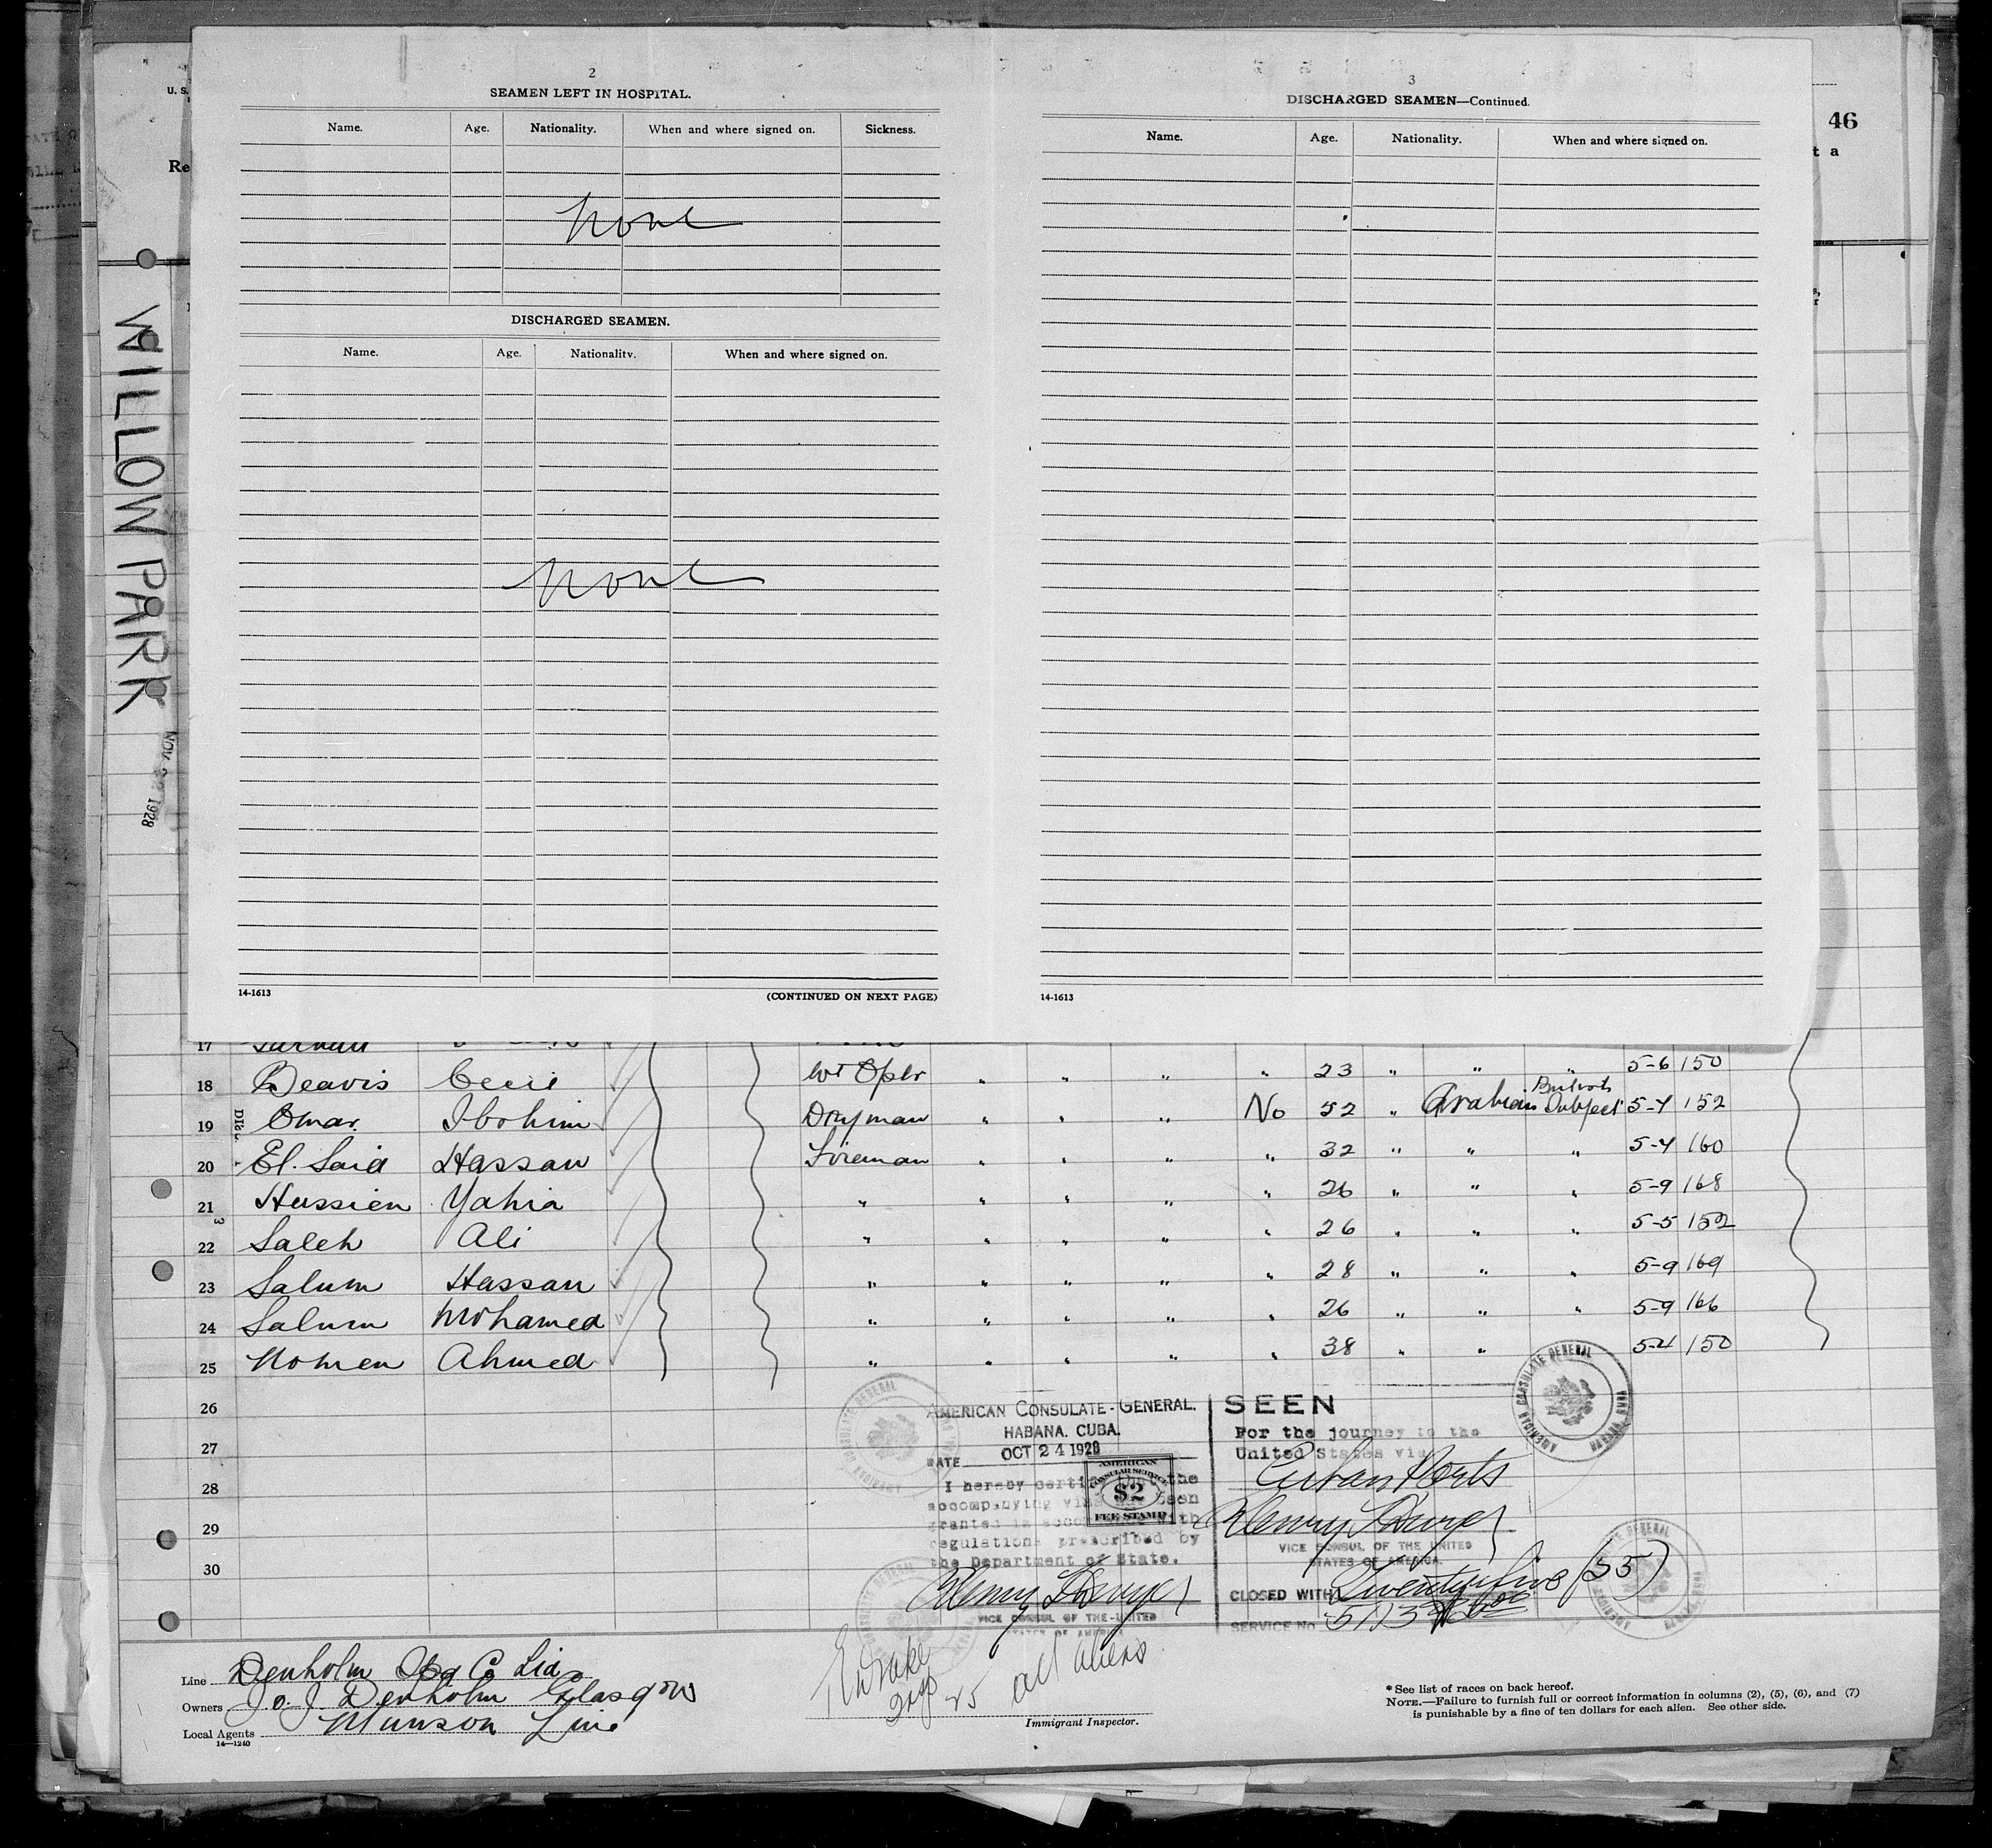 2
SEAMEN LEFT IN HOSPITAL.
Name. Age. Nationality. When and where signed on. Sickness.
None
DISCHARGED SEAMEN.
Name. Age. Nationality. When and where signed on.
None
14-1613 (CONTINUED ON NEXT PAGE)
3
DISCHARGED SEAMEN—Continued.
Name. Age. Nationality. When and where signed on.
14-1613
U. S.
Re
46
t a
WILLOW PARK
NOV 22 1928
17
18 Beavis Cecil Wr Opler " " " " 23 " " " 5-6 150
19 Omar Ibohim Dnyman " " " No 52 " Arabian British Subject 5-4 152
20 El. Said Hassan Fireman " " " " 32 " " " 5-4 160
21 Hussien Yahia " " " " " 26 " " " 5-9 168
22 Saleh Ali " " " " " 26 " " " 5-5 152
23 Salum Hassan " " " " " 28 " " " 5-9 169
24 Salum Mohamed " " " " " 26 " " " 5-9 166
25 Nomen Ahmed " " " " " 38 " " 5-4 150
26
27
28
29
30
AMERICAN CONSULATE-GENERAL.
HABANA. CUBA.
DATE OCT 24 1928
I hereby certify that the
accompanying visa has been
granted in accordance with
regulations prescribed by
the Department of State.
VICE CONSUL OF THE UNITED
STATES OF AMERICA
AMERICAN
CONSULAR SERVICE
$2
FEE STAMP
SEEN
For the journey to the
United States via
Cuban Ports
VICE CONSUL OF THE UNITED
STATES OF AMERICA
CLOSED WITH Twentyfive (25)
SERVICE No
AMERICAN CONSULATE GENERAL
Line Denholm Co Ltd
Owners J. & J. Denholm Glasgow
Local Agents Munson Line
14—1240
25 all aliens
Immigrant Inspector.
* See list of races on back hereof.
NOTE.—Failure to furnish full or correct information in columns (2), (5), (6), and (7)
is punishable by a fine of ten dollars for each alien. See other side.